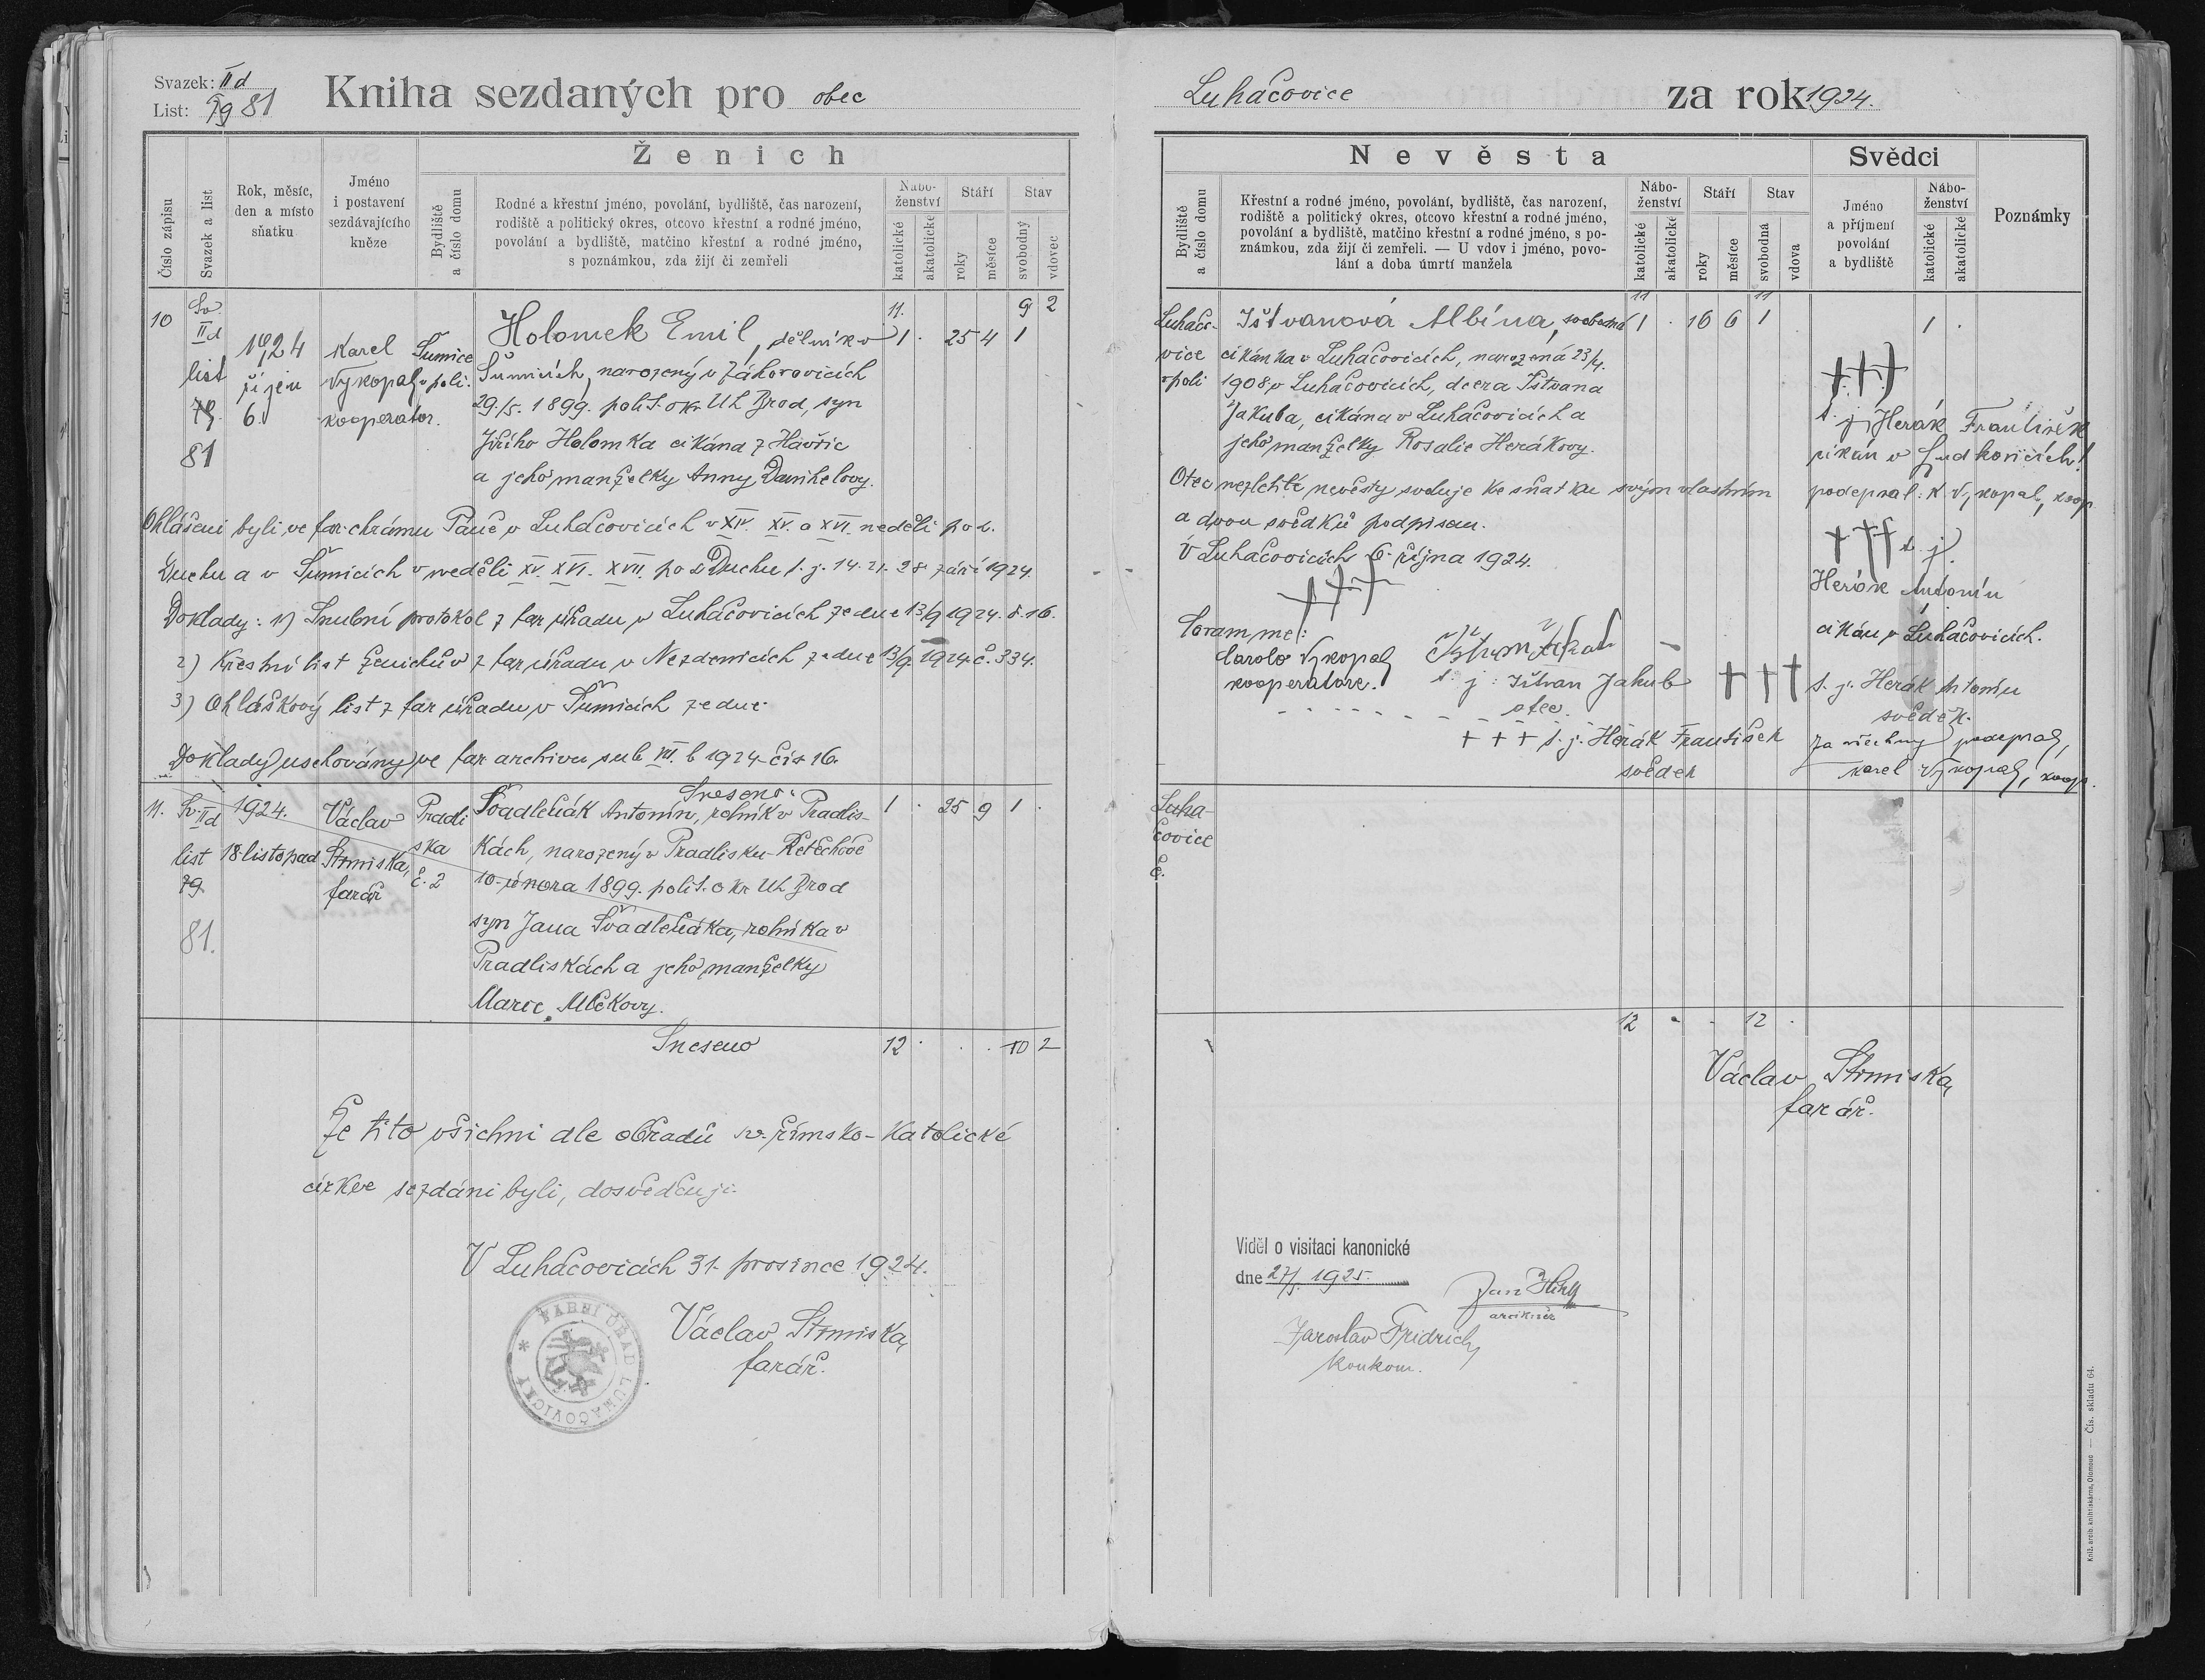 Svazek: IId
List: 79 81
Kniha sezdaných pro obec
Číslo zápisu
Svazek a list
Rok, měsíc,
den a místo
sňatku
Jméno
i postavení
sezdávajícího
kněze
Ženich
Bydliště
a číslo domu
Rodné a křestní jméno, povolání, bydliště, čas narození,
rodiště a politický okres, otcovo křestní a rodné jméno,
povolání a bydliště, matčino křestní a rodné jméno,
s poznámkou, zda žijí či zemřeli
Nábo-
ženství
katolické
akatolické
Stáří
roky
měsíce
Stav
svobodný
vdovec
10
Sv.
IId
list
79.
81
1924
říjen
6.
Karel
Vykopal
kooperator.
Šumice
v poli.
11. 9 2
Holomek Emil, dělník v 1 . 25 4 1
Šumicích, narozený v Záhorovicích
29./5. 1899. polit. okr. Uh. Brod, syn
Jiřího Holomka cikána z Havřic
a jeho manželky Anny Danihelovy.
Ohlášeni byli ve far. chrámu Páně v Luhačovicích v XIV. XV. a XVI. neděli po s.
Duchu a v Šumicích v neděli XV. XVI. XVII. po s. Duchu t. j. 14. 21. 28. září 1924.
Doklady: 1) Snubní protokol z far. úřadu v Luhačovicích ze dne 13/9 1924. č. 16.
2) Křestní list ženichův z far. úřadu v Nezdenicích ze dne 13/9. 1924 č. 334.
3) Ohláškový list z far. úřadu v Šumicích ze dne
Doklady uschovány ve far. archivu sub VII. b 1924 čís 16.
Sneseno:
11. Sv. IId
list
79.
81.
1924.
18. listopad
Václav
Strmiska,
farář
Pradli
ska
č. 2
Švadleňák Antonín, rolník v Pradlis- 1 . 25 9 1 .
kách, narozený v Pradlisku-Řetechově
10. února 1899. polit. okr. Uh. Brod
syn Jana Švadleňáka, rolníka v
Pradliskách a jeho manželky
Marie Mlčkovy.
Sneseno 12 . . . 10 2
Že tito všichni dle obřadů sv. římsko-katolické
církve sezdáni byli, dosvědčuji.
V Luhačovicích 31. prosince 1924.
Václav Strmiska,
farář.
FARNÍ ÚŘAD LUHAČOVICKÝ
Luhačovice
za rok 1924.
Nevěsta
Bydliště
a číslo domu
Křestní a rodné jméno, povolání, bydliště, čas narození,
rodiště a politický okres, otcovo křestní a rodné jméno,
povolání a bydliště, matčino křestní a rodné jméno, s po-
známkou, zda žijí či zemřeli. — U vdov i jméno, povo-
lání a doba úmrtí manžela
Nábo-
ženství
katolické
akatolické
Stáří
roky
měsíce
Stav
svobodná
vdova
Svědci
Jméno
a příjmení
povolání
a bydliště
Nábo-
ženství
katolické
akatolické
Poznámky
11 11
Luhačo-
vice
v poli
Ištvanová Albína, svobodná 1 . 16 6 1 1 .
cikánka v Luhačovicích, narozená 23/4.
1908 v Luhačovicích, dcera Ištvana
Jakuba, cikána v Luhačovicích a
jeho manželky Rosalie Herákovy.
Otec nezletilé nevěsty svoluje ke sňatku svým vlastním
a dvou svědků podpisem.
V Luhačovicích 6. října 1924.
+++
Coram me:
Carolo Vykopal
kooperatore.
t. j. Ištvan Jakub
otec.
+ + + t. j. Herák František
svědek
+++
t. j. Herák František
cikán v Ludkovicích!
podepsal: K. Vykopal, koop.
+++ t. j.
Herák Antonín
cikán v Luhačovicích.
+++ t. j. Herák Antonín
svědek.
Za všechny podepsal,
Karel Vykopal, koop.
Luha-
čovice
č.
12 . . 12 .
Václav Strmiska,
farář.
Viděl o visitaci kanonické
dne 27/5. 1925.
arcikněz
Jaroslav Fridrich
konkom.
Kníž. arcib. knihtiskárna, Olomouc — Čís. skladu 64.